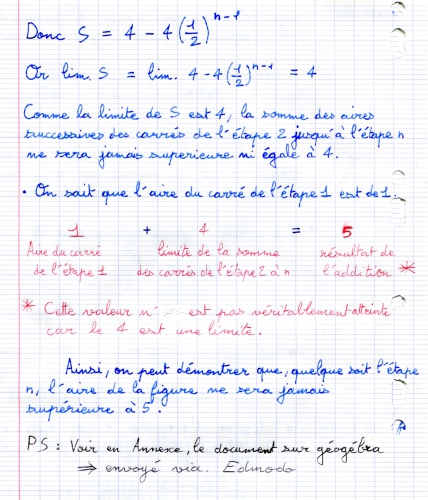 Donc S = 4 - 4(1/2)^n-1
Or lim. S = lim. 4 - 4(1/2)^n-1 = 4
Comme la limite de S est 4, la somme des aires
successives des carrés de l'étape 2 jusqu'à l'étape n
ne sera jamais superieure ni égale à 4.
• On sait que l'aire du carré de l'étape 1 est de 1.
1 + 4 = 5
Aire du carré limite de la somme résultat de
de l'étape 1 des carrés de l'étape 2 à n l'addition *
* Cette valeur n' est pas véritablement atteinte
car le 4 est une limite.
Ainsi, on peut démontrer que, quelque soit l'étape
n, l'aire de la figure ne sera jamais
supérieure à 5.
PS : Voir en Annexe, le document sur géogébra
⇒ envoyé via. Edmodo